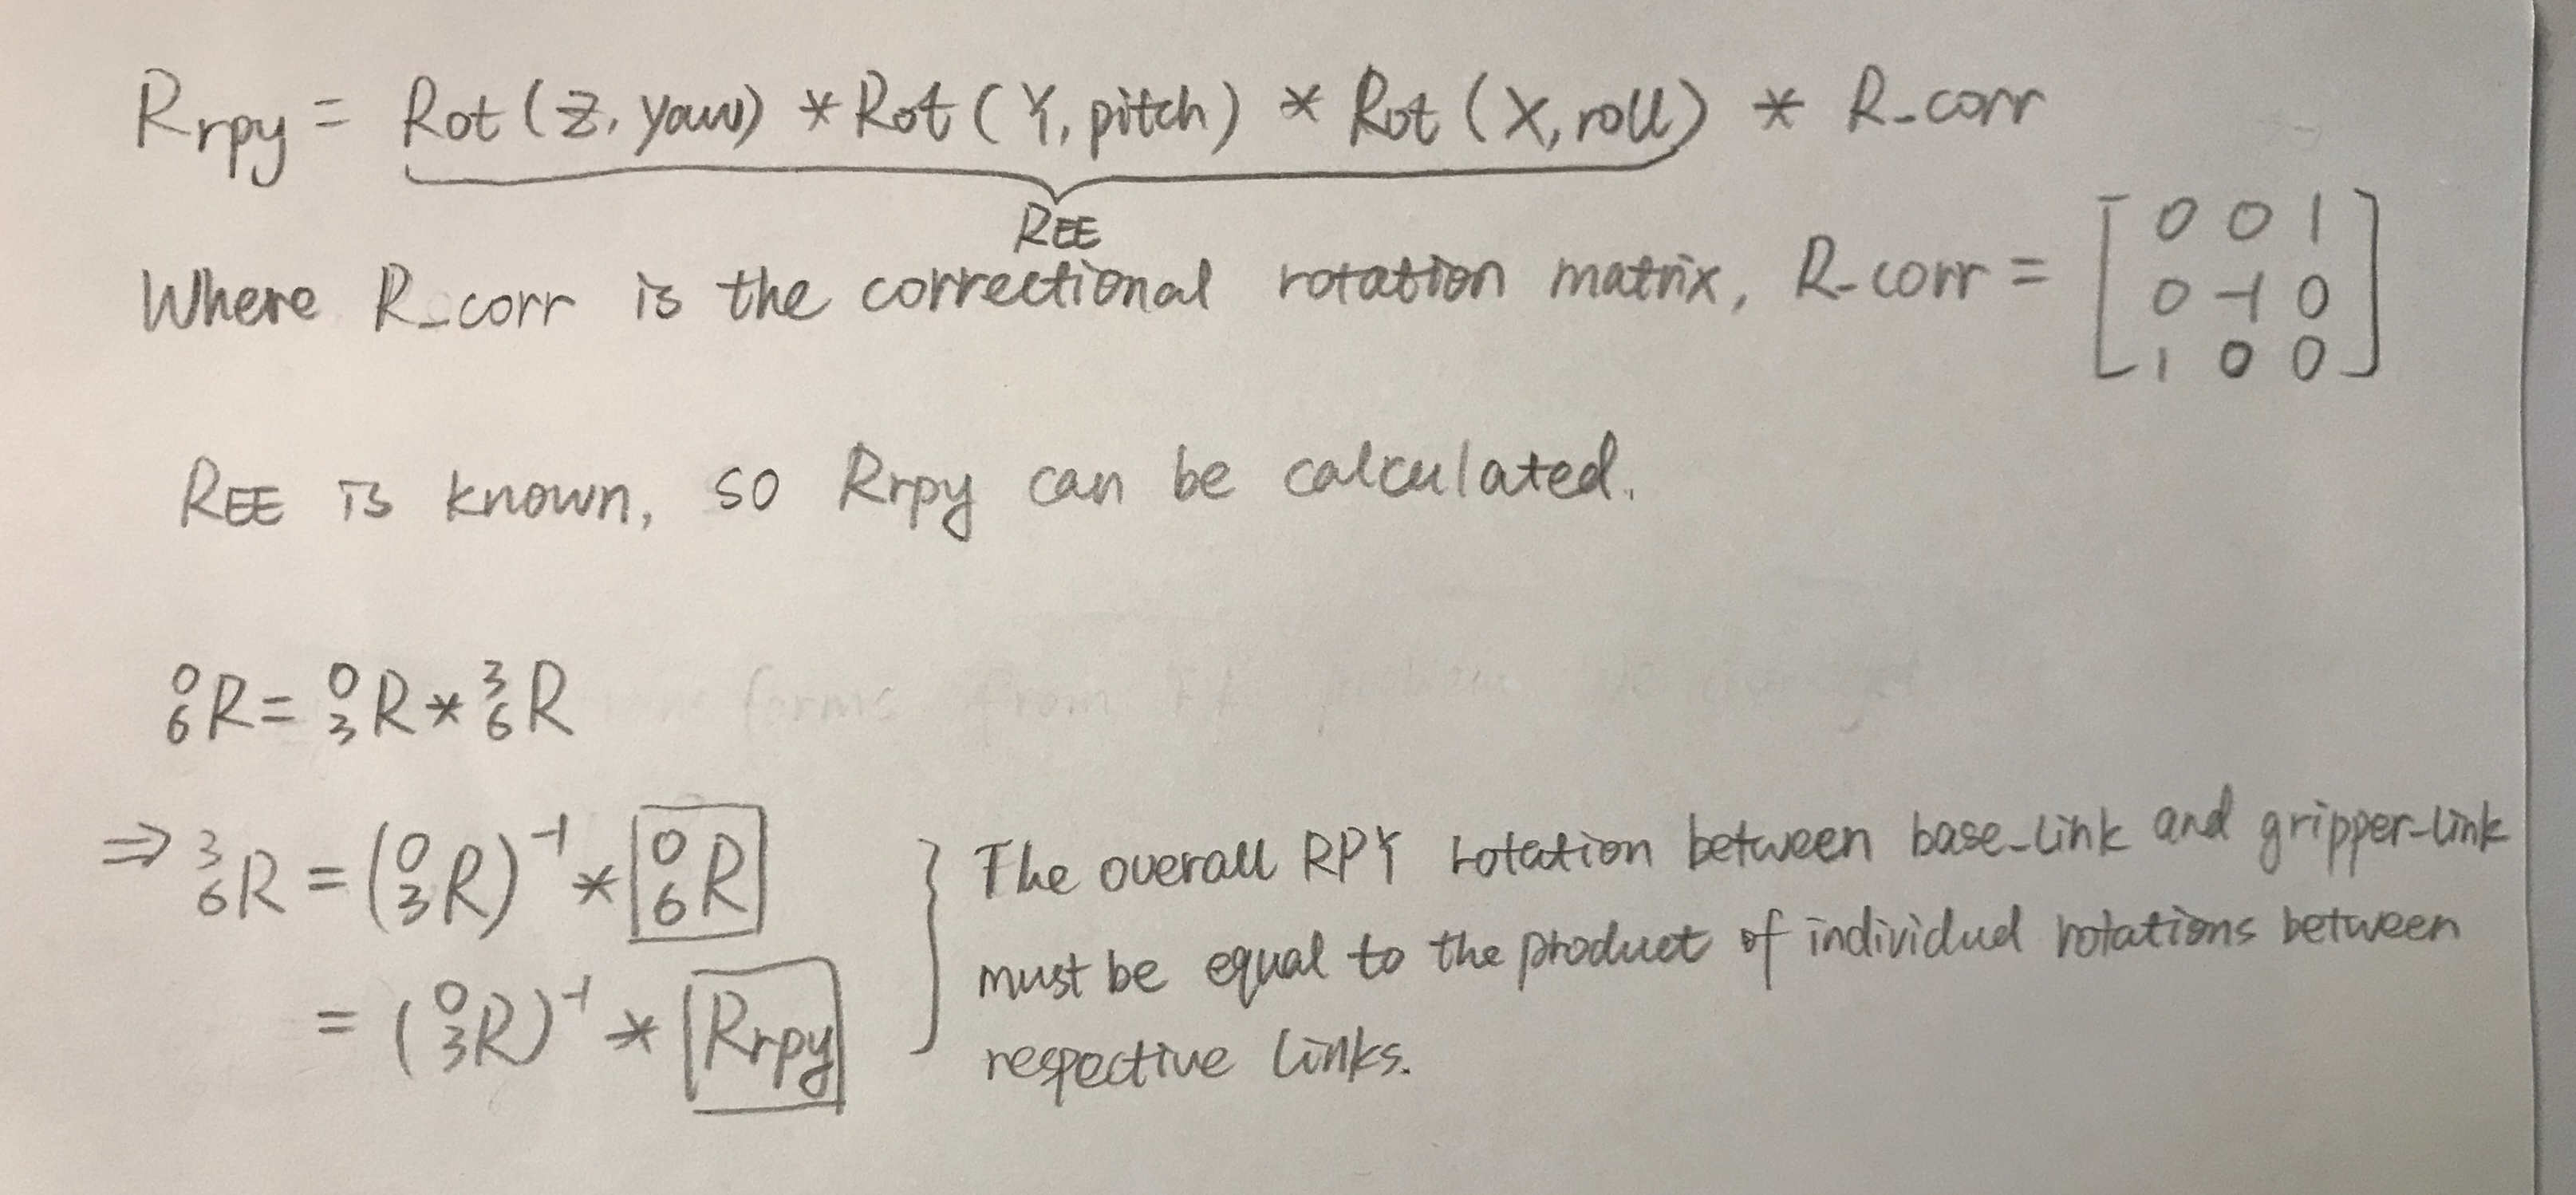 Rrpy = Rot(Z, yaw) * Rot(Y, pitch) * Rot(X, roll) * R_corr
REE
Where R_corr is the correctional rotation matrix, R_corr = [0 0 1
0 -1 0
1 0 0]
REE is known, so Rrpy can be calculated.
forms from
⁰₆R = ⁰₃R * ³₆R
⇒ ³₆R = (⁰₃R)⁻¹ * ⁰₆R
= (⁰₃R)⁻¹ * Rrpy
The overall RPY rotation between base_link and gripper-link
must be equal to the product of individual rotations between
respective links.